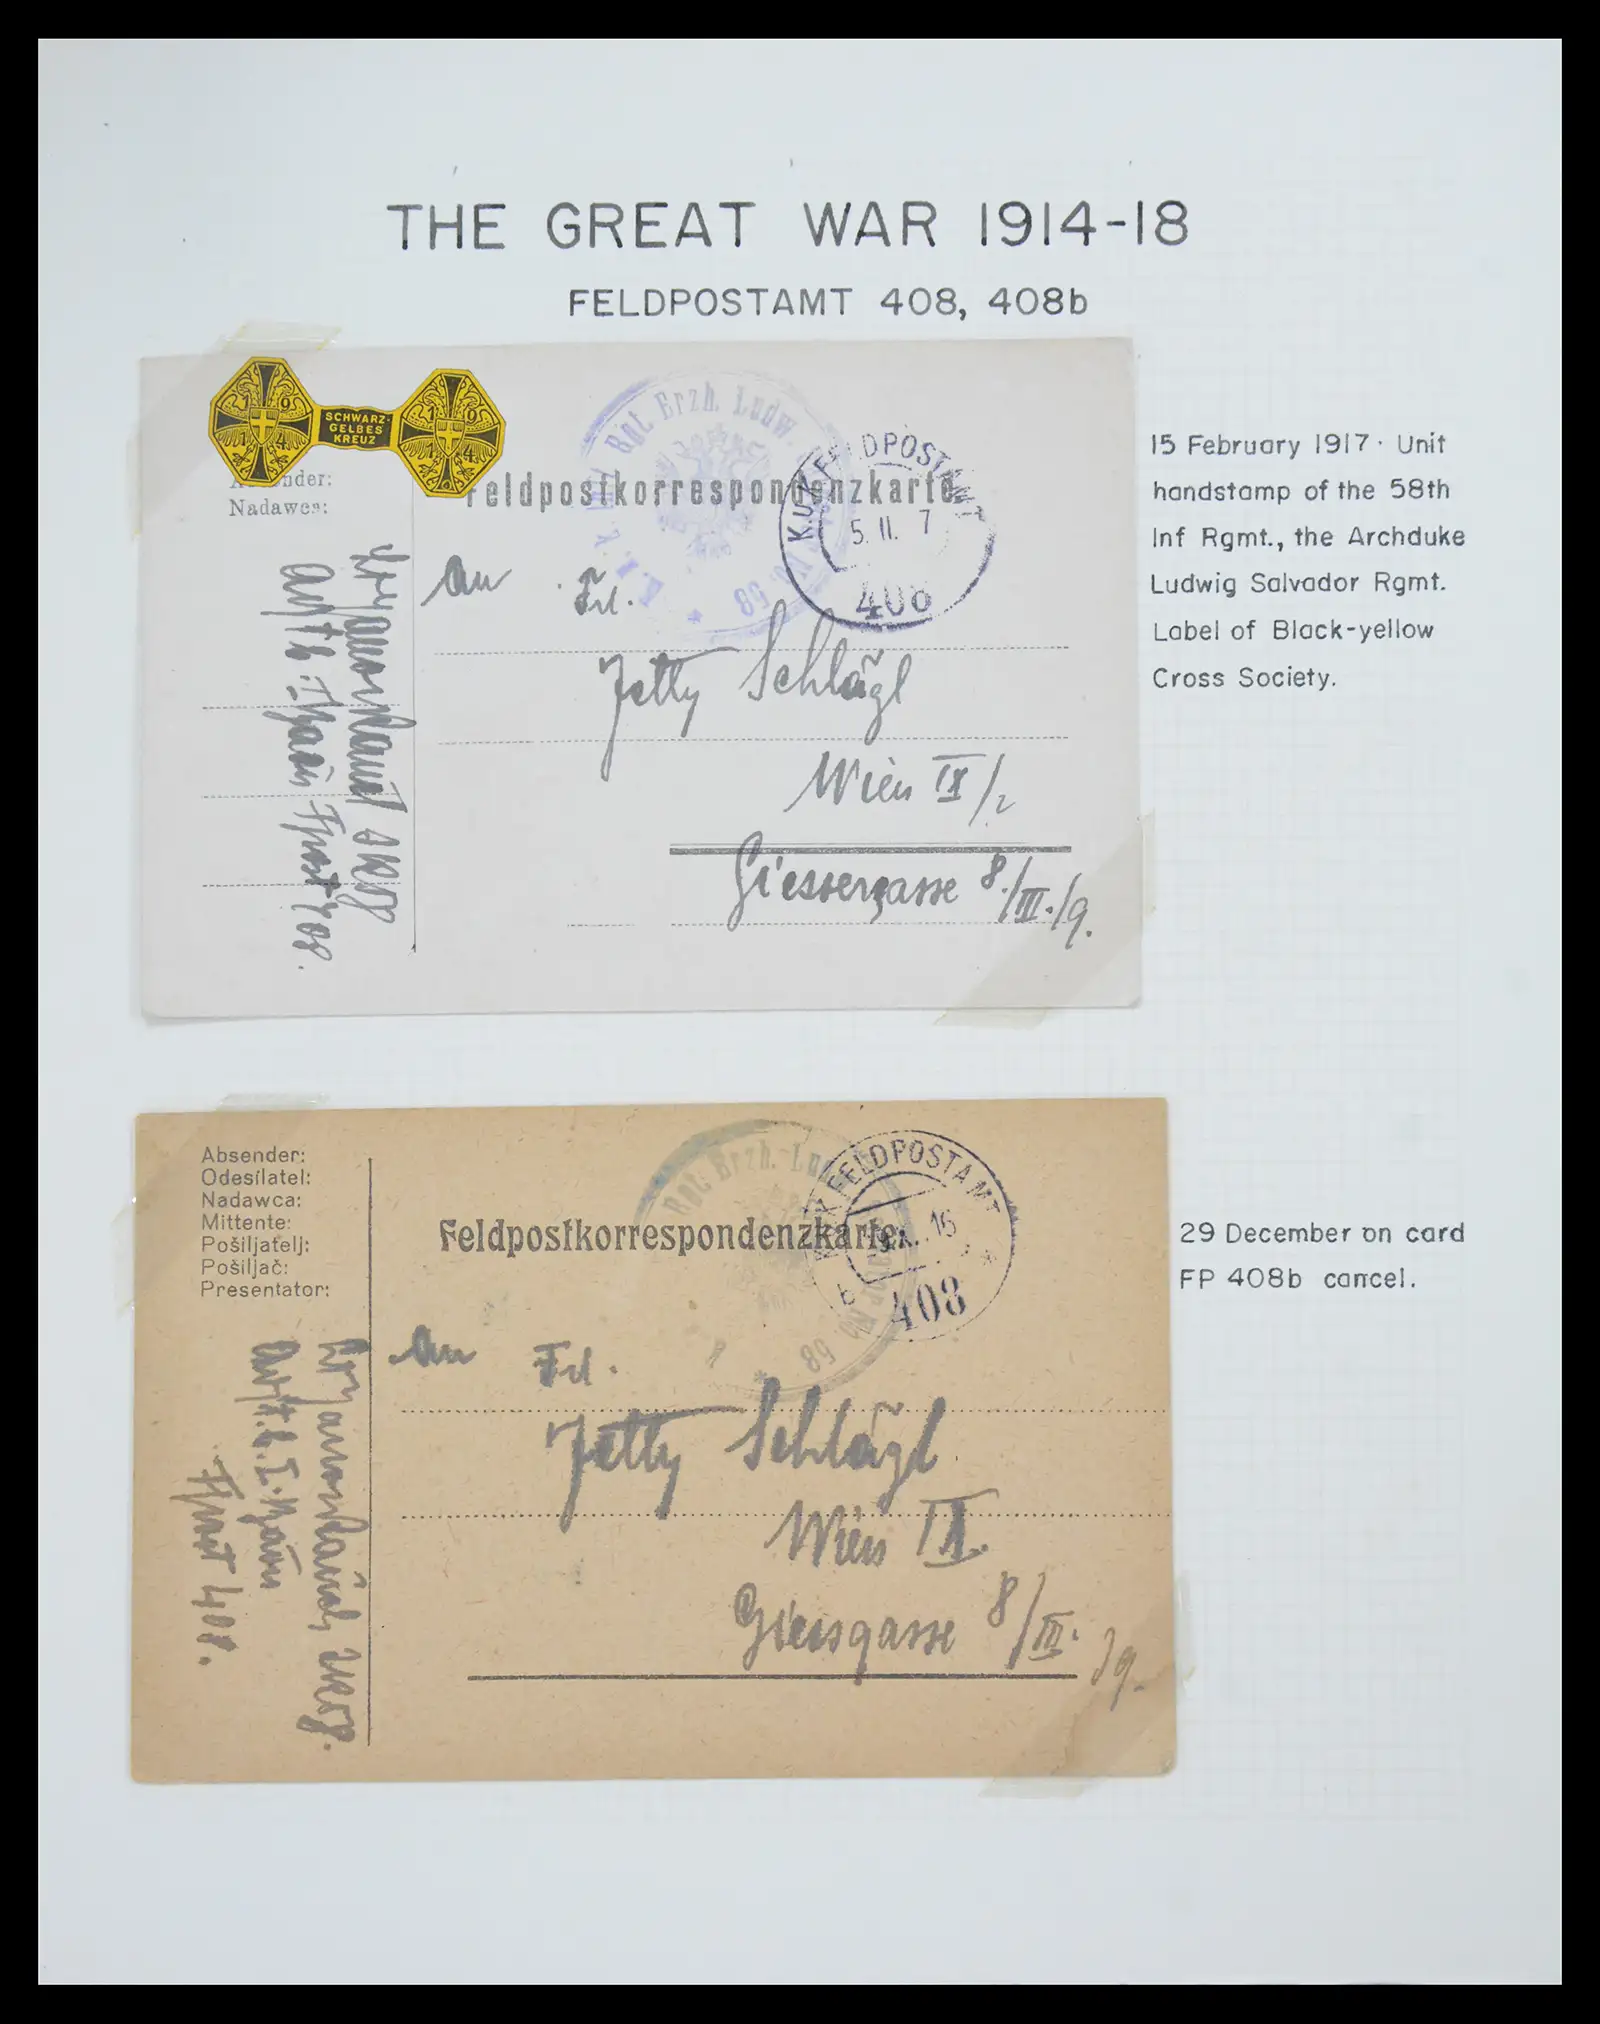 THE GREAT WAR 1914-18
FELDPOSTAMT 408, 408b
19
14
SCHWARZ-
GELBES
KREUZ
19
14
Rgt. Erzh. Ludw.
No. 58
K.u.K. FELDPOSTAMT
5. II. 7
408
nder:
Nadawca:
Feldpostkorrespondenzkarte
An Frl.
Jetty Schlägl
Wien IX/2
Giessergasse 8./III./9.
408.
15 February 1917 · Unit
handstamp of the 58th
Inf Rgmt., the Archduke
Ludwig Salvador Rgmt.
Label of Black-yellow
Cross Society.
Absender:
Odesílatel:
Nadawca:
Mittente:
Pošiljatelj:
Pošiljač:
Presentator:
Rgt. Erzh. Lud
No. 58
FELDPOSTAMT
16
b 408
Feldpostkorrespondenzkarte.
An Frl.
Jetty Schlägl
Wien IX.
Giessgasse 8/III. 9.
408.
29 December on card
FP 408b cancel.